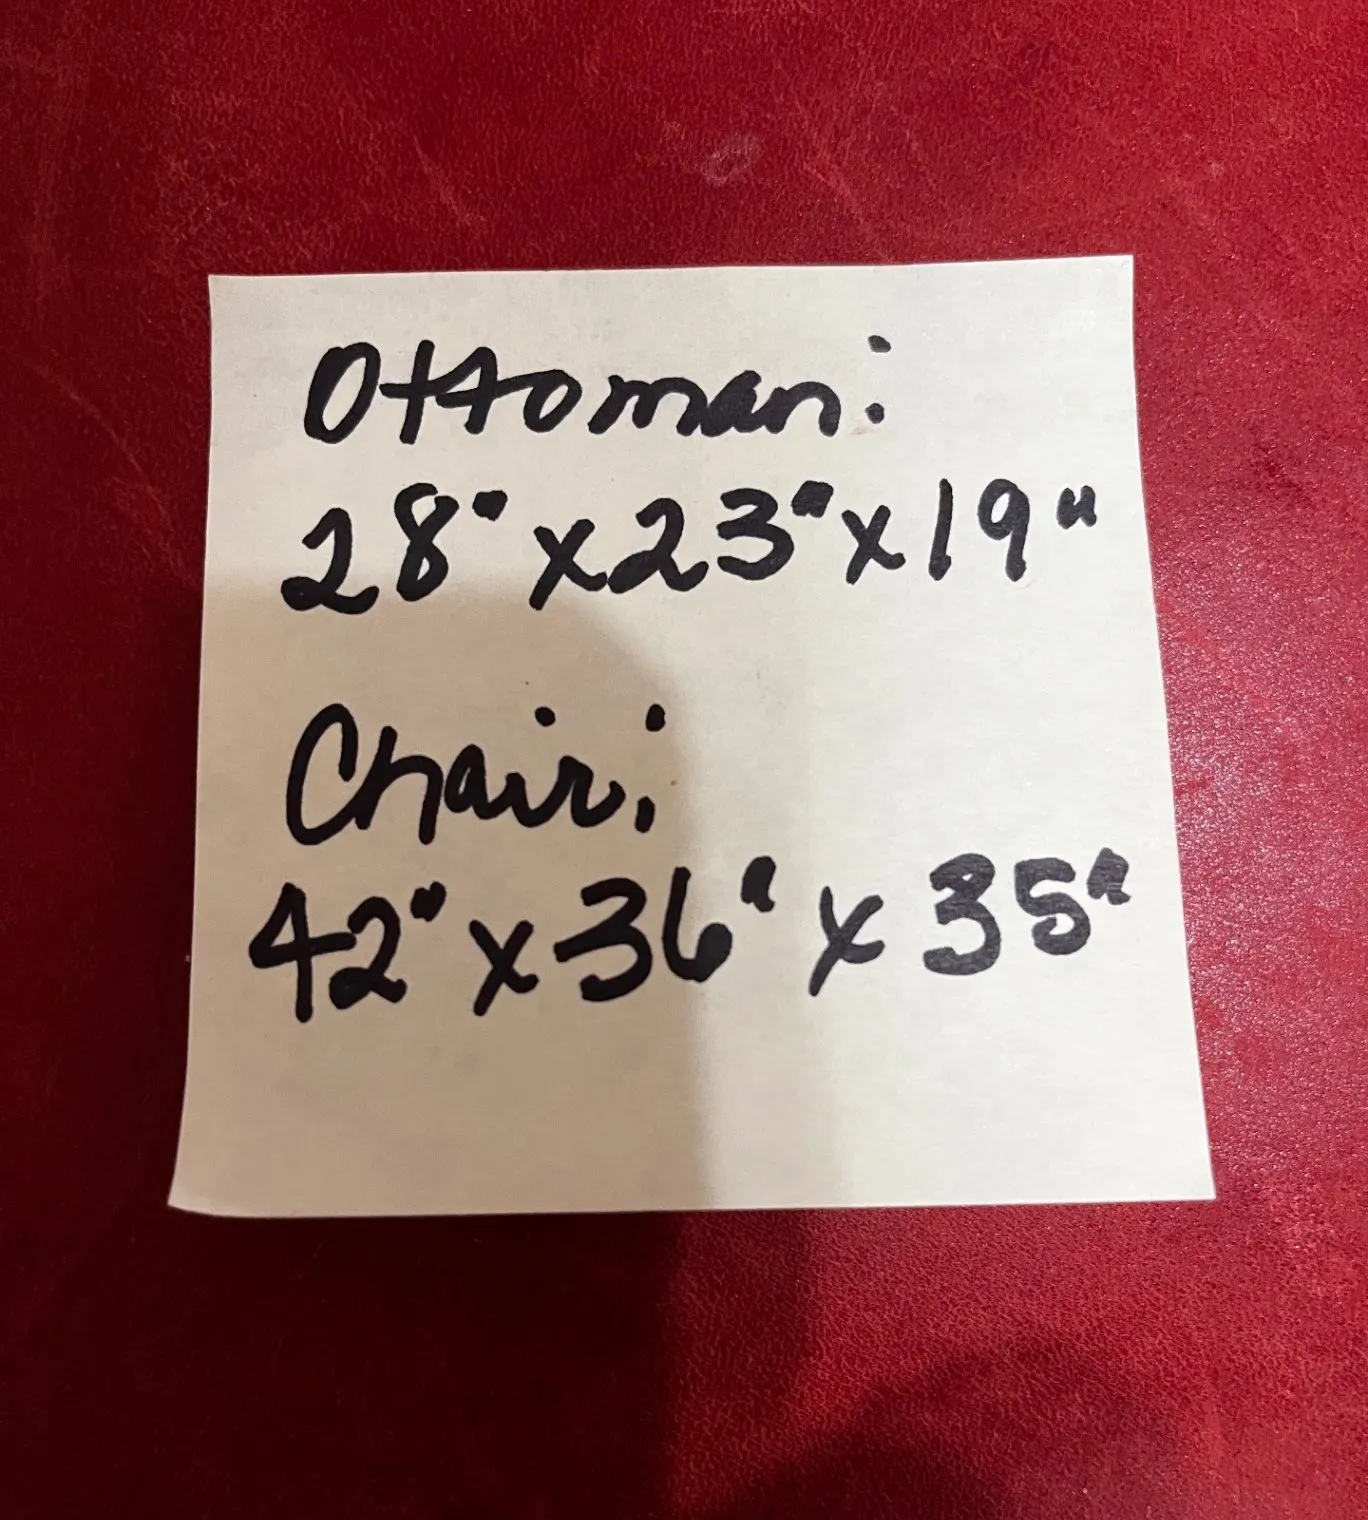 Ottoman:
28" x 23" x 19"
Chair:
42" x 36" x 35"